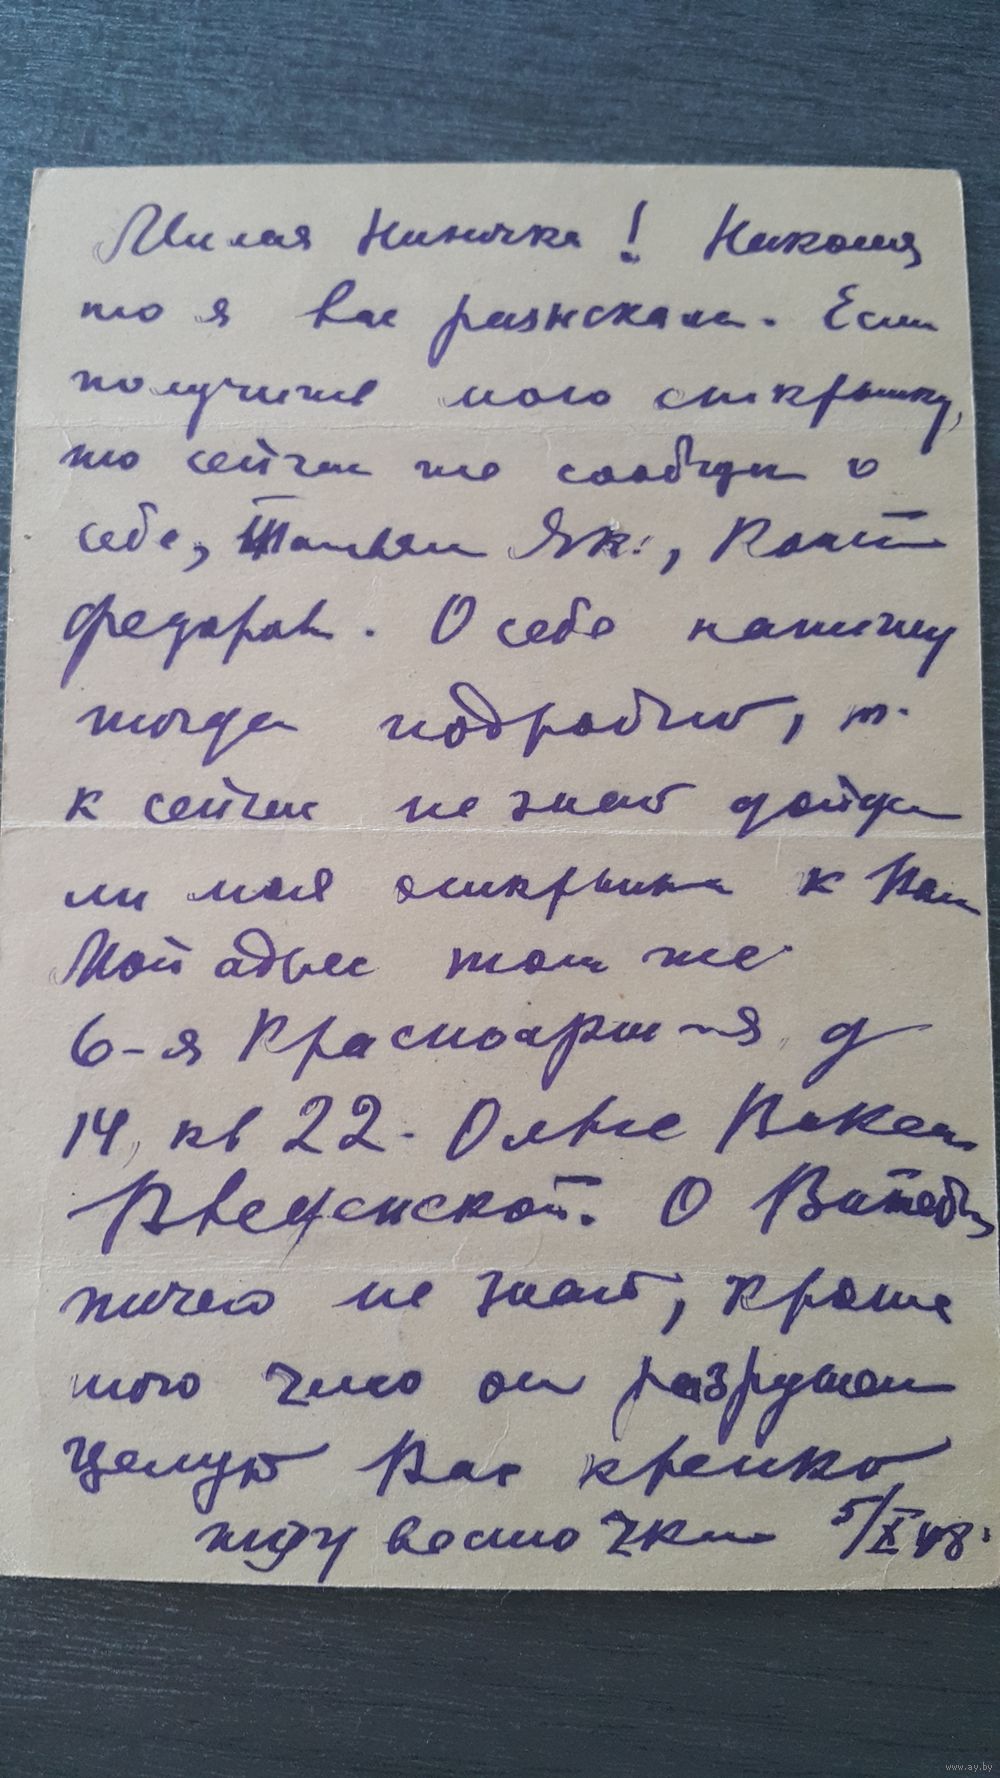 Милая Ниночка! Наконец
то я вас разыскала. Если
получите мою открытку,
то сейчас же сообщи о
себе, Татьян Як., Конст
Федоров. О себе напишу
тогда подробно, т.
к сейчас не знаю дойде
ли моя открытка к Вам
Мой адрес тот же
6-я Красноарм-ая д
14, кв 22. Ольге Викен
Введенской. О Витебск
ничего не знаю, кроме
того что он разрушен
Целую Вас крепко
жду весточки 5/X 48.
www.ay.by